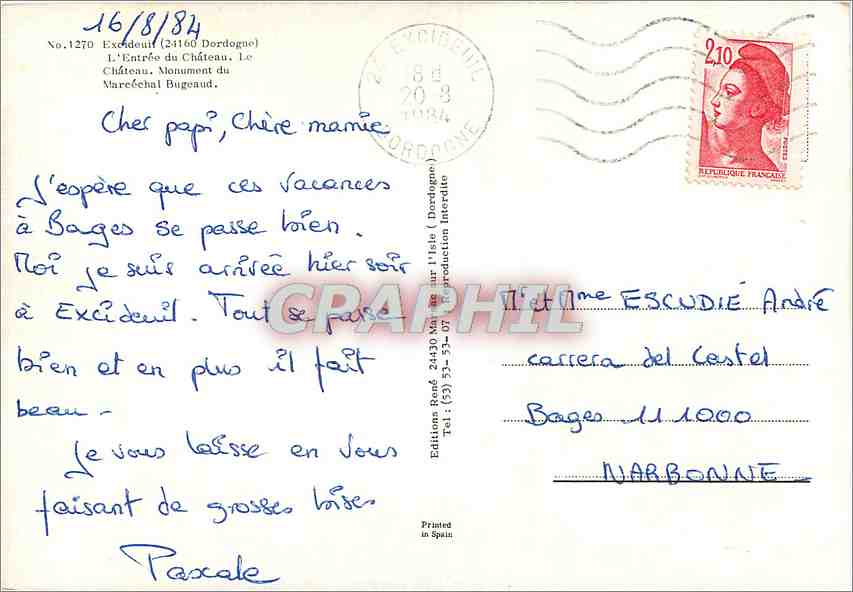 16/8/84
No.1270 Excideuil (24160 Dordogne)
L'Entrée du Château. Le
Château. Monument du
Maréchal Bugeaud.
Cher papi, Chère mamie
J'espère que ces vacances
à Bages se passe bien.
Moi je suis arrivée hier soir
à Excideuil. Tout se passe
bien et en plus il fait
beau -
Je vous laisse en vous
faisant de grosses bises
Pascale
24 EXCIDEUIL
18 H
20-8
1984
DORDOGNE
2,10
POSTES
REPUBLIQUE FRANÇAISE
Editions René 24430 Marsac sur l'Isle ( Dordogne )
Tel : (53) 53-53-07 Reproduction Interdite
CPAPHIL
Mr et Mme ESCUDIÉ André
carrera del Castel
Bages 11 1000
NARBONNE
Printed
in Spain